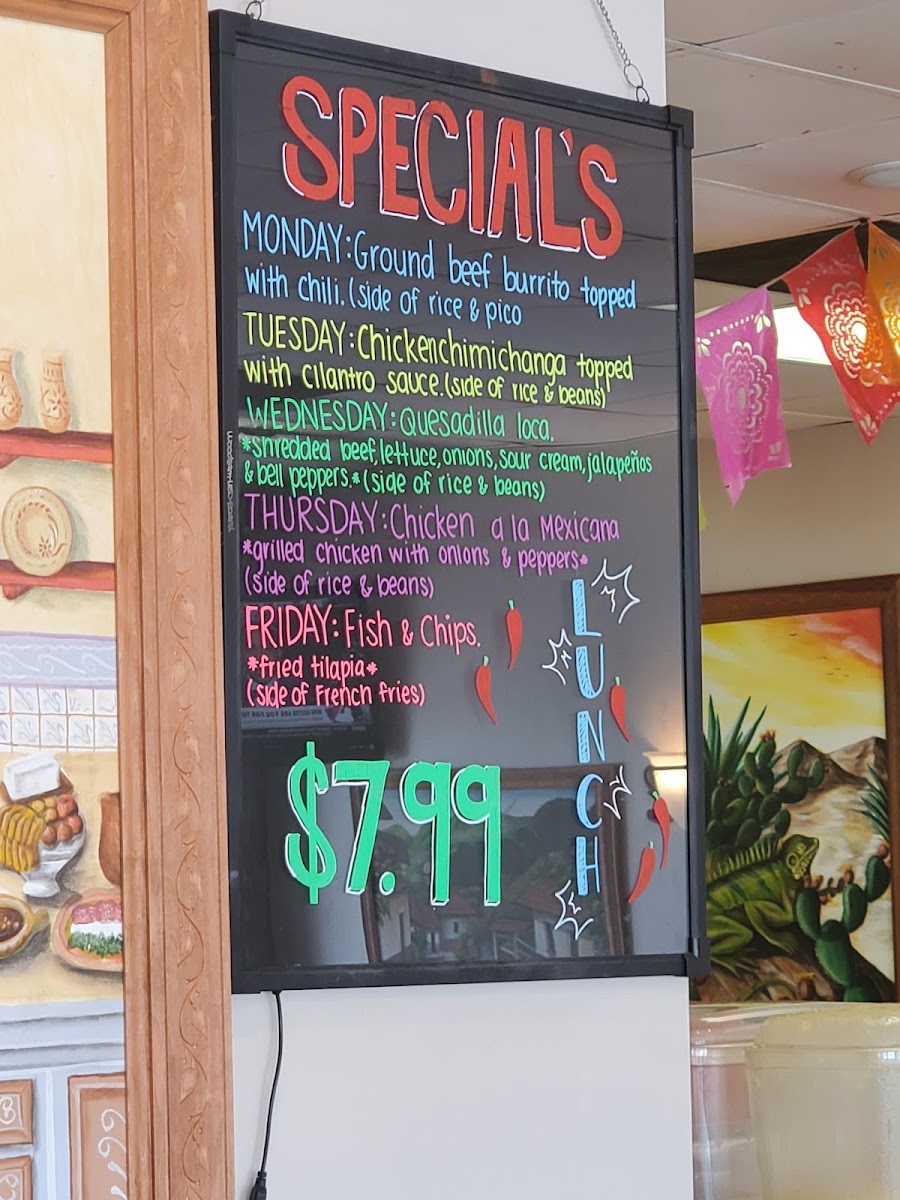 SPECIAL'S
MONDAY: Ground beef burrito topped
with chili. (side of rice & pico
TUESDAY: Chickenchimichanga topped
with cilantro sauce. (side of rice & beans)
WEDNESDAY: Quesadilla loca.
*shredded beef, lettuce, onions, sour cream, jalapeños
& bell peppers.* (side of rice & beans)
THURSDAY: Chicken a la Mexicana
*grilled chicken with onions & peppers*
(side of rice & beans)
FRIDAY: Fish & Chips.
*fried tilapia*
(side of French fries)
$7.99
LUNCH